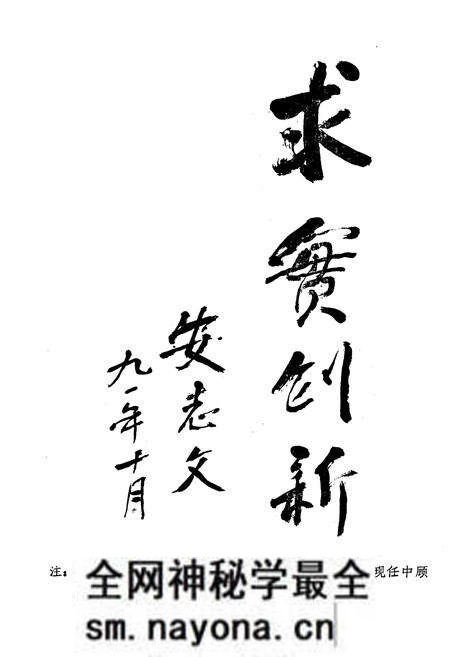 求實创新
安志文
九一年十月
注：
现任中顾
全网神秘学最全
sm.nayona.cn